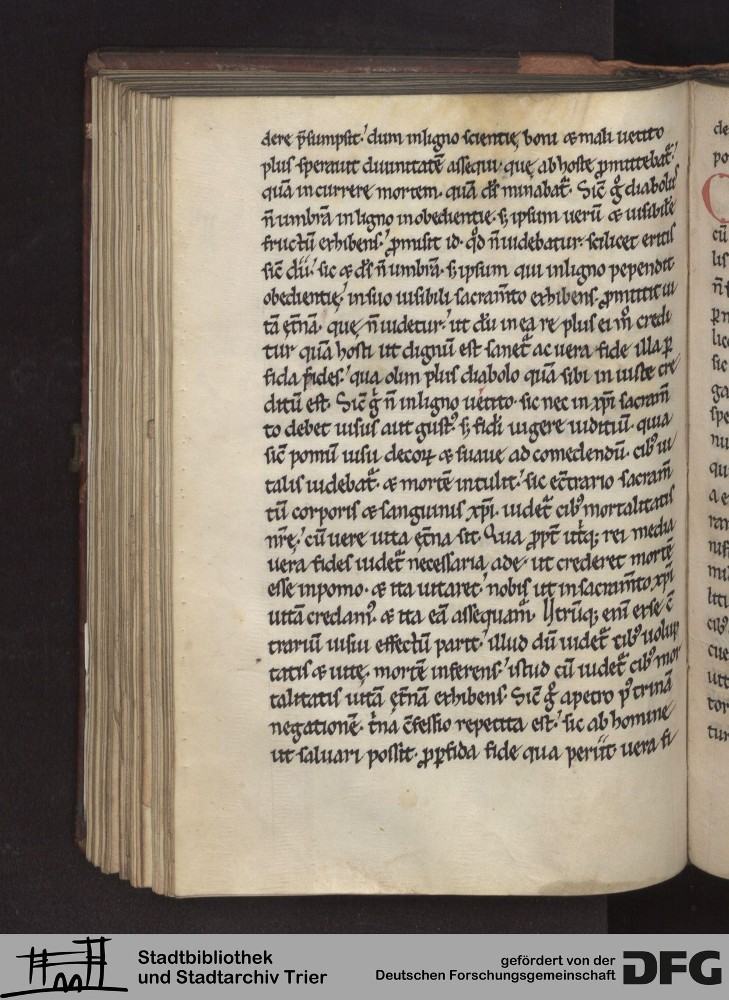 dere p̄sumpsit. dum inligno scientię boni & mali uetito
plus sperauit diuinitatē assequi. quę ab hoste ꝓmittebat᷑.
quā incurrere mortem. quā ds̄ minabat᷑. Sic̄ g̊ diabolus
n̄ umbrā inligno inobedientie. s; ipsum uerū & uisibile
fructū exhibens. ꝓmisit id. qd̊ n̄ uidebatur. scilicet eritis
sic̄ dii. sic & ds̄ n̄ umbrā. s; ipsum qui inligno pependit
obedientię. insuo uisibili sacram̄to exhibens. ꝓmittit ui
tā ęt̄nā. que n̄ uidetur. ut dū in ea re plus ei m̊ credi
tur quā hosti ut dignū est sanet᷑ ac uera fide illa ꝑ
fida fides. qua olim plus diabolo quā sibi in iuste cre
ditū est. Sic̄ g̊ n̄ inligno uetito. sic nec in xp̄i sacram̄
to debet uisus aut gustꝰ s; fidei uigere iuditiū. quia
sic̄ pomū uisu decoꝝ & suaue ad comedendū. cibꝰ ui
talis uidebat᷑. & mortē intulit. sic ec̄trario sacram̄
tū corporis & sanguinis xp̄i. uidet᷑ cibꝰ mortalitatis
nr̄ę. cū uere uita ęt̄na sit. Qua ꝓpt̄ utq; rei media
uera fides uidet᷑ necessaria. ade. ut crederet mortē
esse inpomo. & ita uitaret. nobis ut in sacram̄to xp̄i
uitā credamꝰ. & ita eā assequam᷑. Utrūq; enī exse c̄
trariū uisui effectū parit. illud dū uidet᷑ cibꝰ uolup
tatis & uitę. mortē inferens. istud cū uidet᷑ cibꝰ mor
talitatis uitā ęt̄nā exhibens. Sic̄ g̊ apetro p̊ trinā
negationē. t̄na c̄fessio repetita est. sic ab homine
ut saluari possit. ꝓ ꝑfida fide qua periit uera fi
Stadtbibliothek
und Stadtarchiv Trier
gefördert von der
Deutschen Forschungsgemeinschaft
DFG